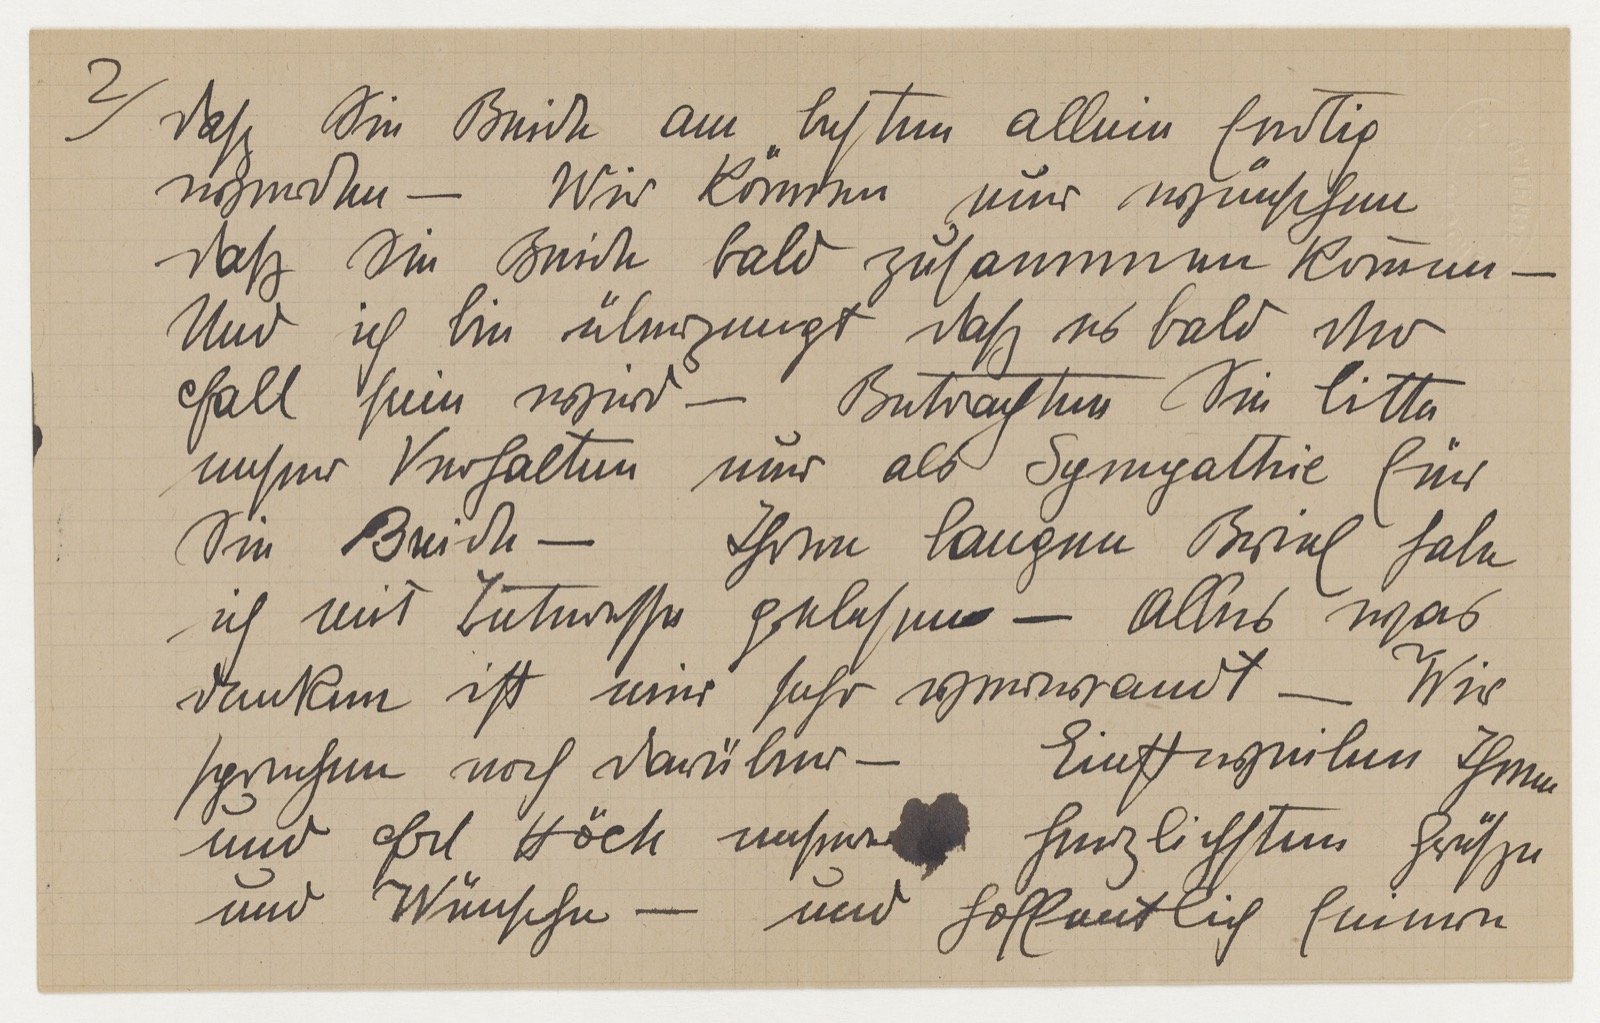 2/
daß Sie Beide am besten allein fertig
werden – Wir können nur wünschen
daß Sie Beide bald zusammen kom̄en –
Und ich bin überzeugt daß es bald der
Fall sein wird – Betrachten Sie bitte
unser Verhalten nur als Sympathie für
Sie Beide – Ihren langen Brief habe
ich mit Interesse gelesen – Alles was
danken ist mir sehr verwandt – Wir
sprechen noch darüber – Einstweilen Ihnen
und Frl Höch unsere herzlichsten Grüße
und Wünsche – und hoffentlich